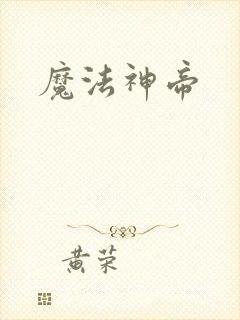 魔法神帝
黄荣